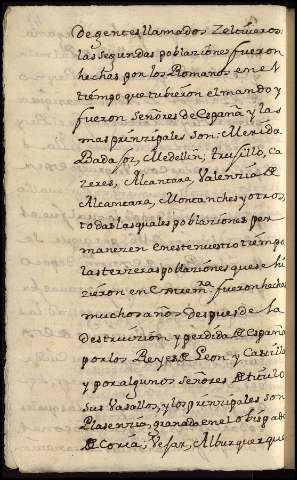 de gentes llamados Zeltiueros
las segundas poblaziones fueron
hechas por los Romanos en el
tiempo que tubieron el mando y
fueron Señores de España y las
mas prinzipales son: Merida
Badajoz, Medellin, trusillo, Ca
zeres, Alcantara, Valenzia de
Alcantara, Montanches y otros,
todas las quales poblaziones per
manezen en este nuestro tiempo
las terzeras poblaziones que se hi
zieron en Extremra. fueron hechas
muchos años despues de la
destruizion y perdida de España
por los Reyes de Leon, y Castilla
y por algunos Señores de titulo
sus Vasallos, y los prinzipales son
Plasenzia, granada en el obispado
de Coria, Vejar, Alburquerque